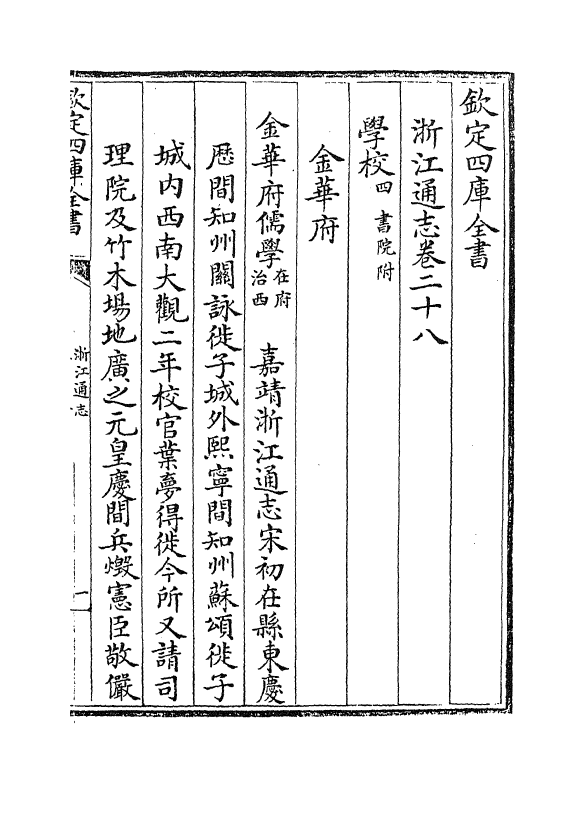 欽定四庫全書
浙江通志卷二十八
學校四 書院附
金華府
金華府儒學在府治西 嘉靖浙江通志宋初在縣東慶
厯間知州關詠徙子城外熙寧間知州蘇頌徙子
城内西南大觀二年校官葉夢得徙今所又請司
理院及竹木場地廣之元皇慶間兵燬憲臣敬儼
欽定四庫全書
浙江通志